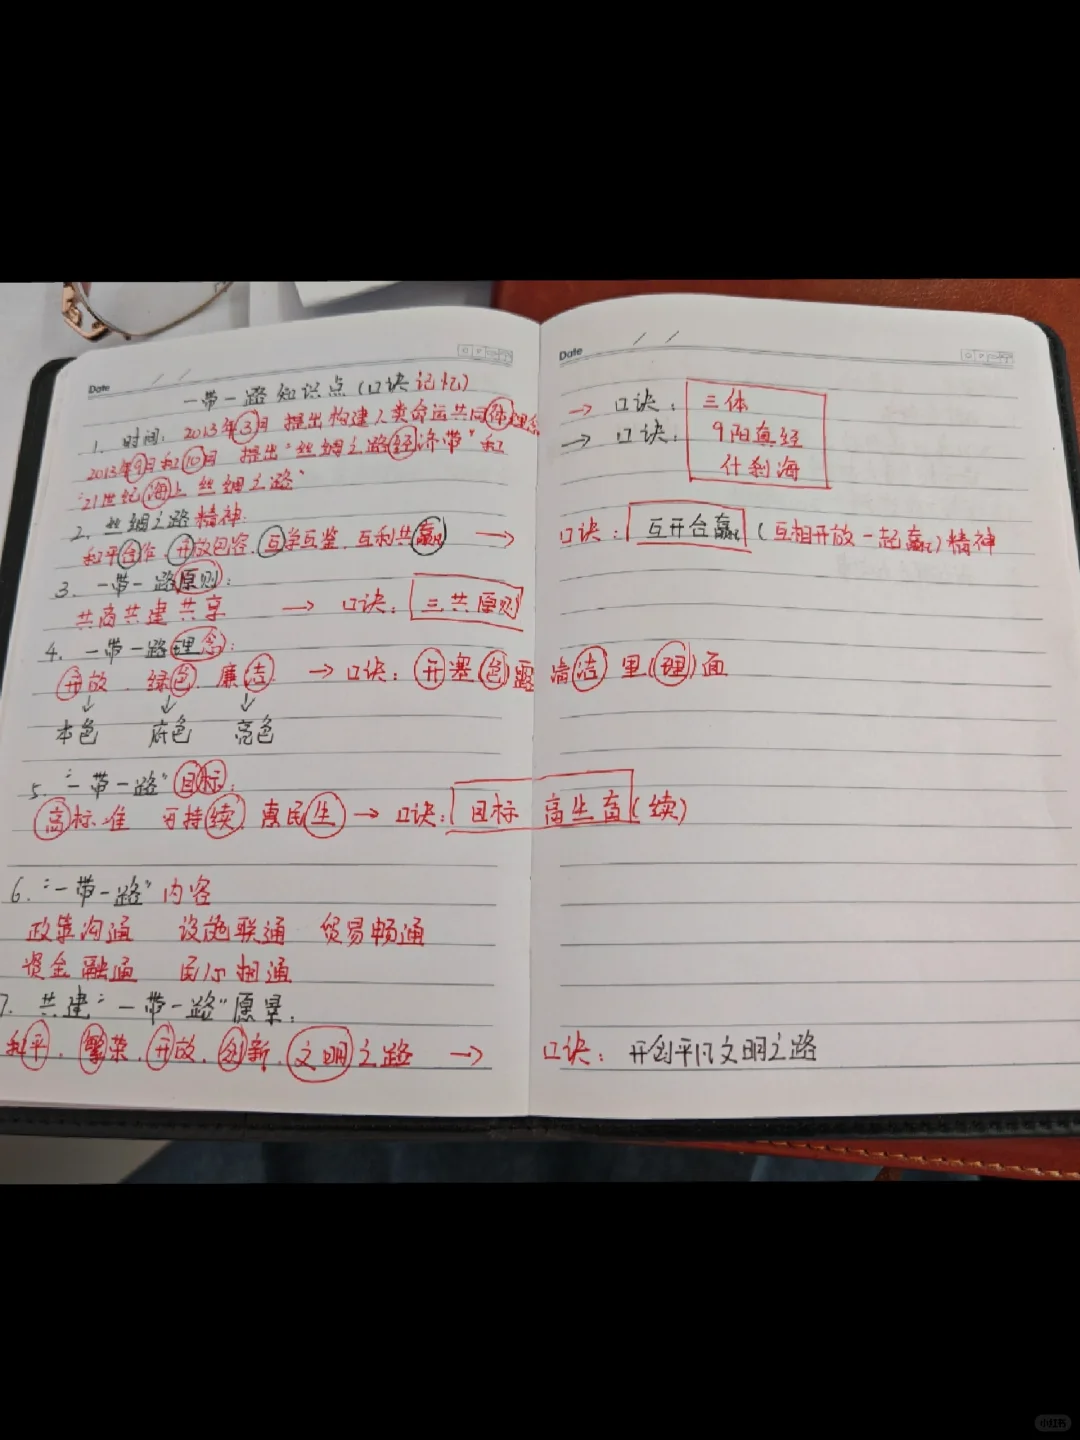 Date
一带一路知识点(口诀记忆)
1. 时间: 2013年3月 提出构建人类命运共同体理念
2013年9月和10月 提出"丝绸之路经济带"和
"21世纪海上丝绸之路"
2. 丝绸之路精神:
和平合作、开放包容、互学互鉴、互利共赢 →
3. 一带一路原则:
共商共建共享 → 口诀: 三共原则
4. 一带一路理念:
开放、绿色、廉洁 → 口诀: 开塞色露 清洁里(理)面
↓ ↓ ↓
本色 底色 亮色
5. "一带一路"目标:
高标准 可持续 惠民生 → 口诀: 目标 高生畜(续)
6. "一带一路"内容
政策沟通 设施联通 贸易畅通
资金融通 民心相通
7. 共建"一带一路"愿景:
和平、繁荣、开放、创新、文明之路 →
Date
→ 口诀: 三体
→ 口诀: 9阳真经
什刹海
口诀: 互开合赢(互相开放一起赢)精神
口诀: 开创平凡文明之路
小红书